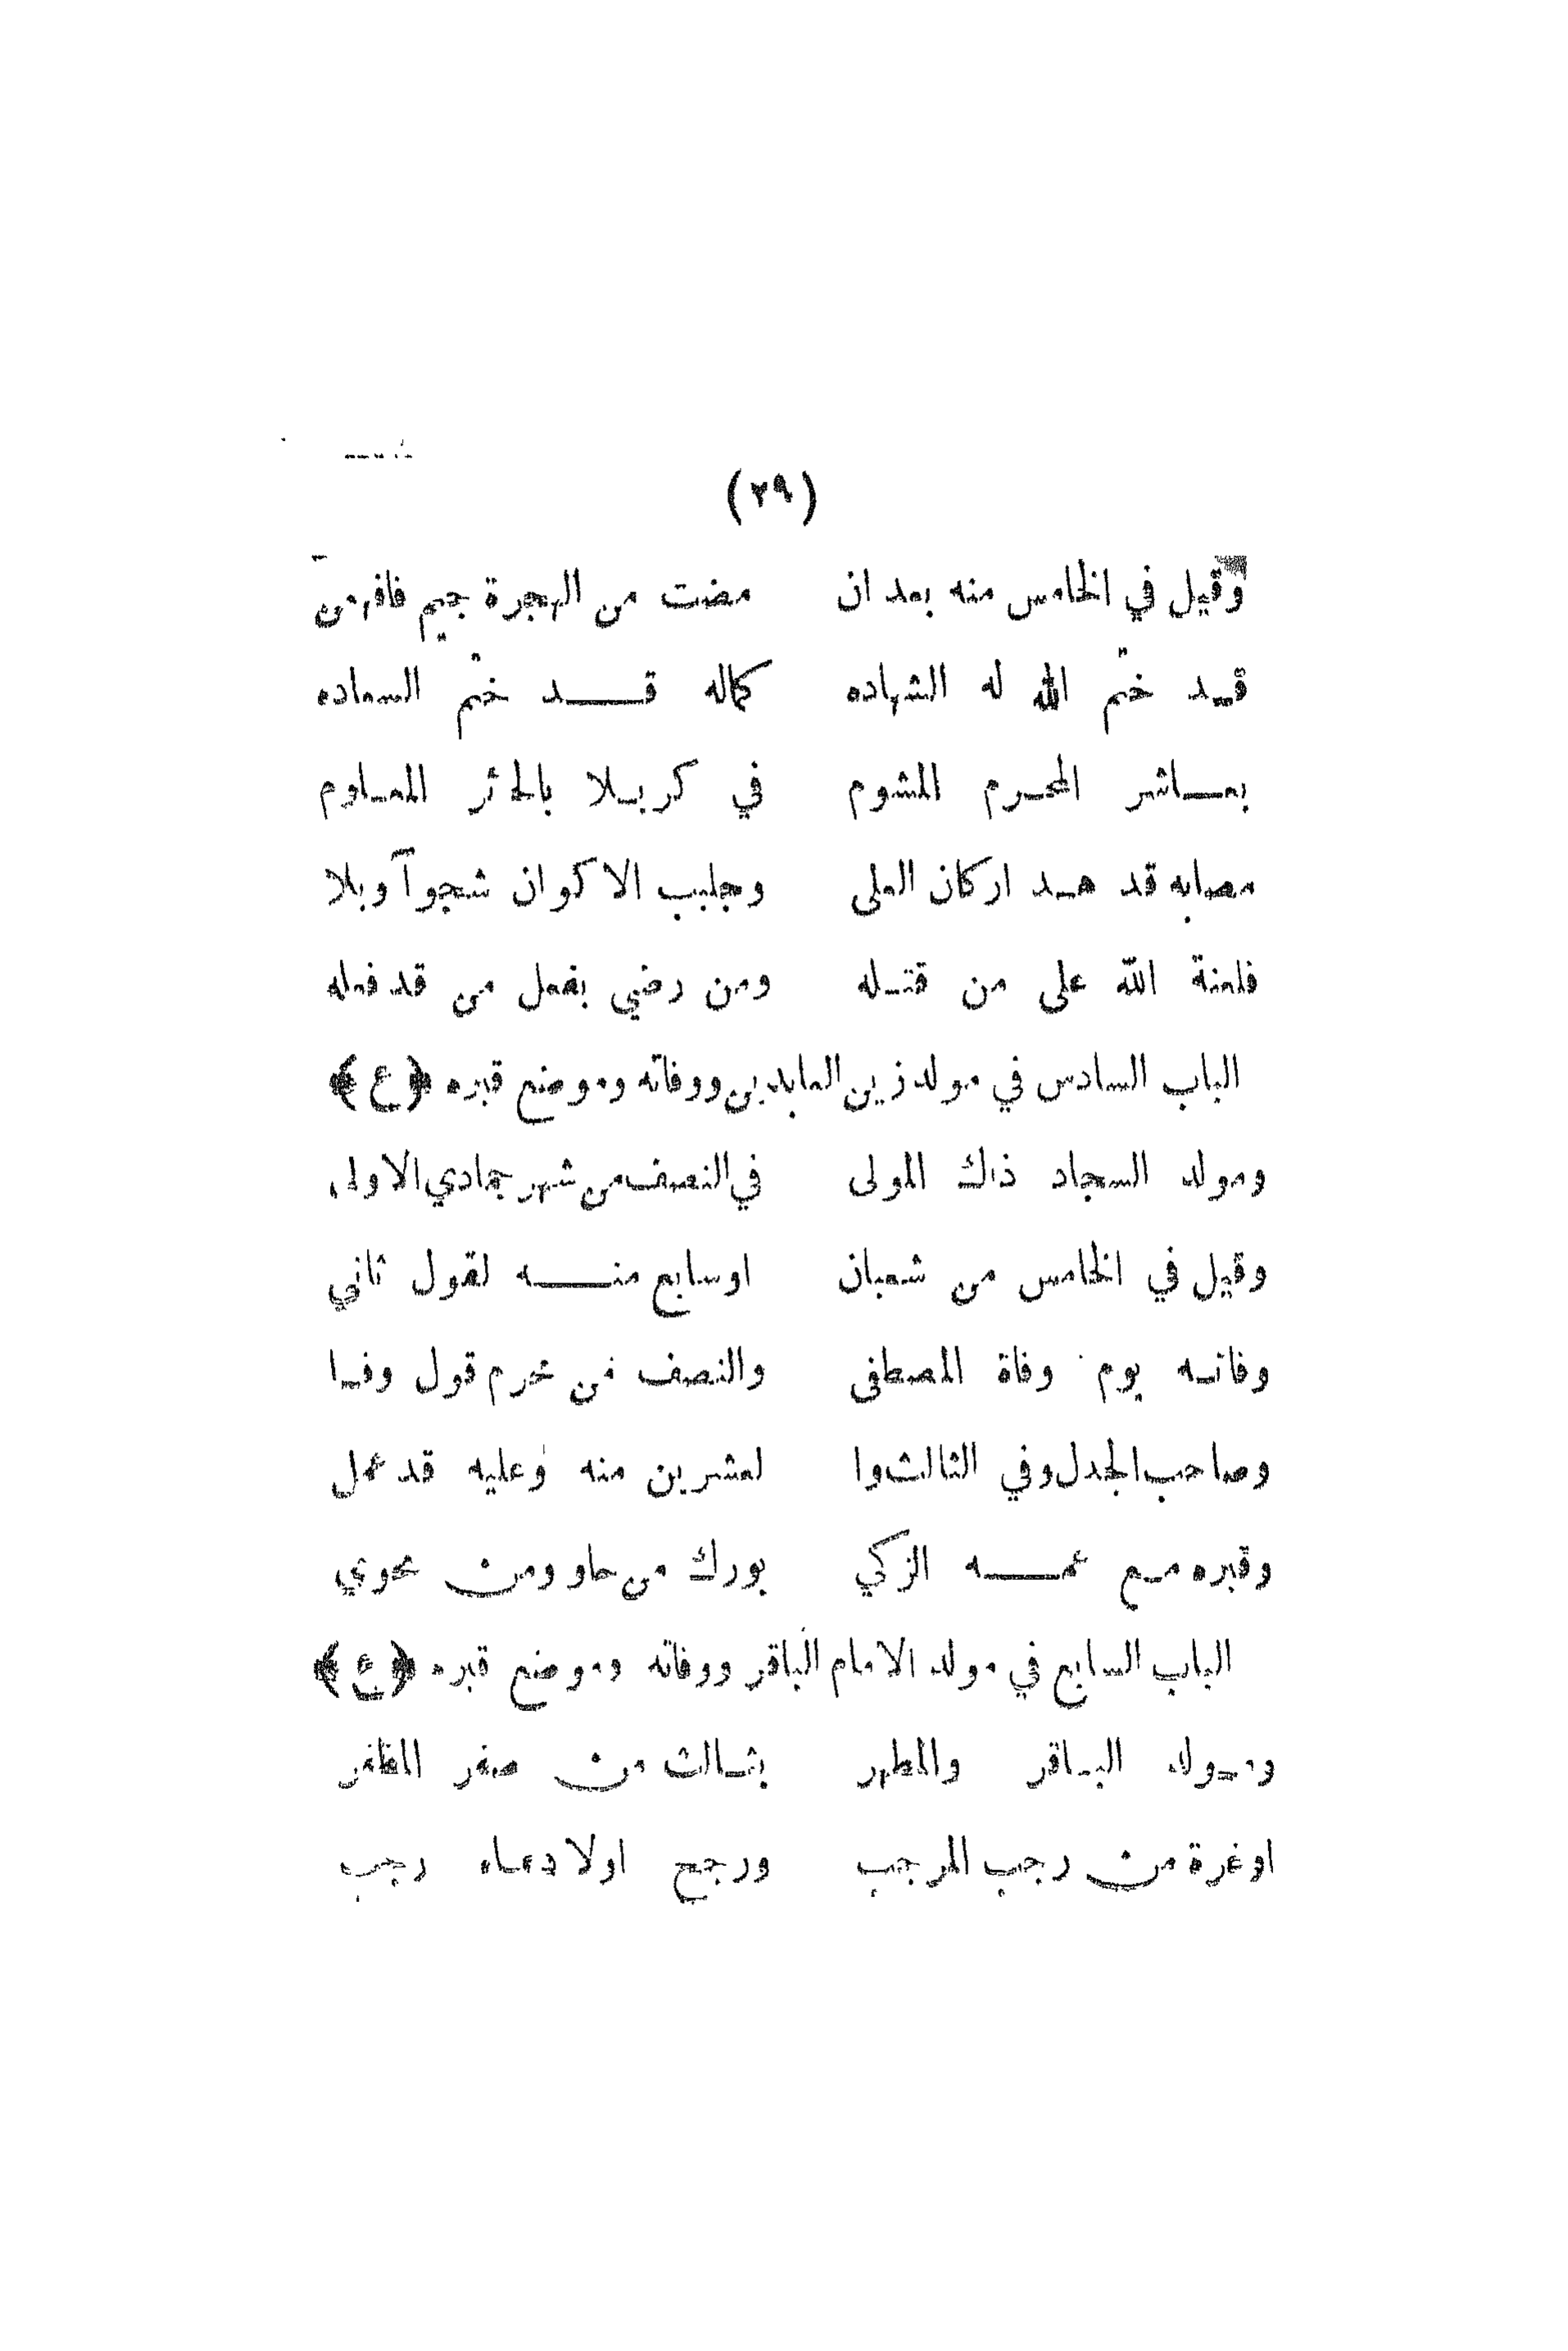 (٢٩)
وقيل في الخامس منه بعد ان مضت من الهجرة جيم فافهمن
قد ختم الله له الشهاده كماله قد ختم السعاده
بعاشر المحرم المشوم في كربلا بالحائر المعلوم
مصابه قد هد اركان العلى وجلبب الاكوان شجواً وبلا
فلعنة الله على من قتله ومن رضي بفعل من قد فعله
الباب السادس في مولد زين العابدين ووفاته وموضع قبره ﴿ع﴾
ومولد السجاد ذاك المولى في النصف من شهر جمادي الاولى
وقيل في الخامس من شعبان اوسابع منه لقول ثاني
وفاته يوم وفاة المصطفى والنصف من محرم قول وفا
وصاحب الجدل وفي الثالث وا لعشرين منه وعليه قد عمل
وقبره مع عمه الزكي بورك من حاو ومن محوي
الباب السابع في مولد الامام الباقر ووفاته وموضع قبره ﴿ع﴾
ومولد الباقر والمطهر بثالث من صفر المظفر
اوغرة من رجب المرجب ورجح اولا دعاء رجب